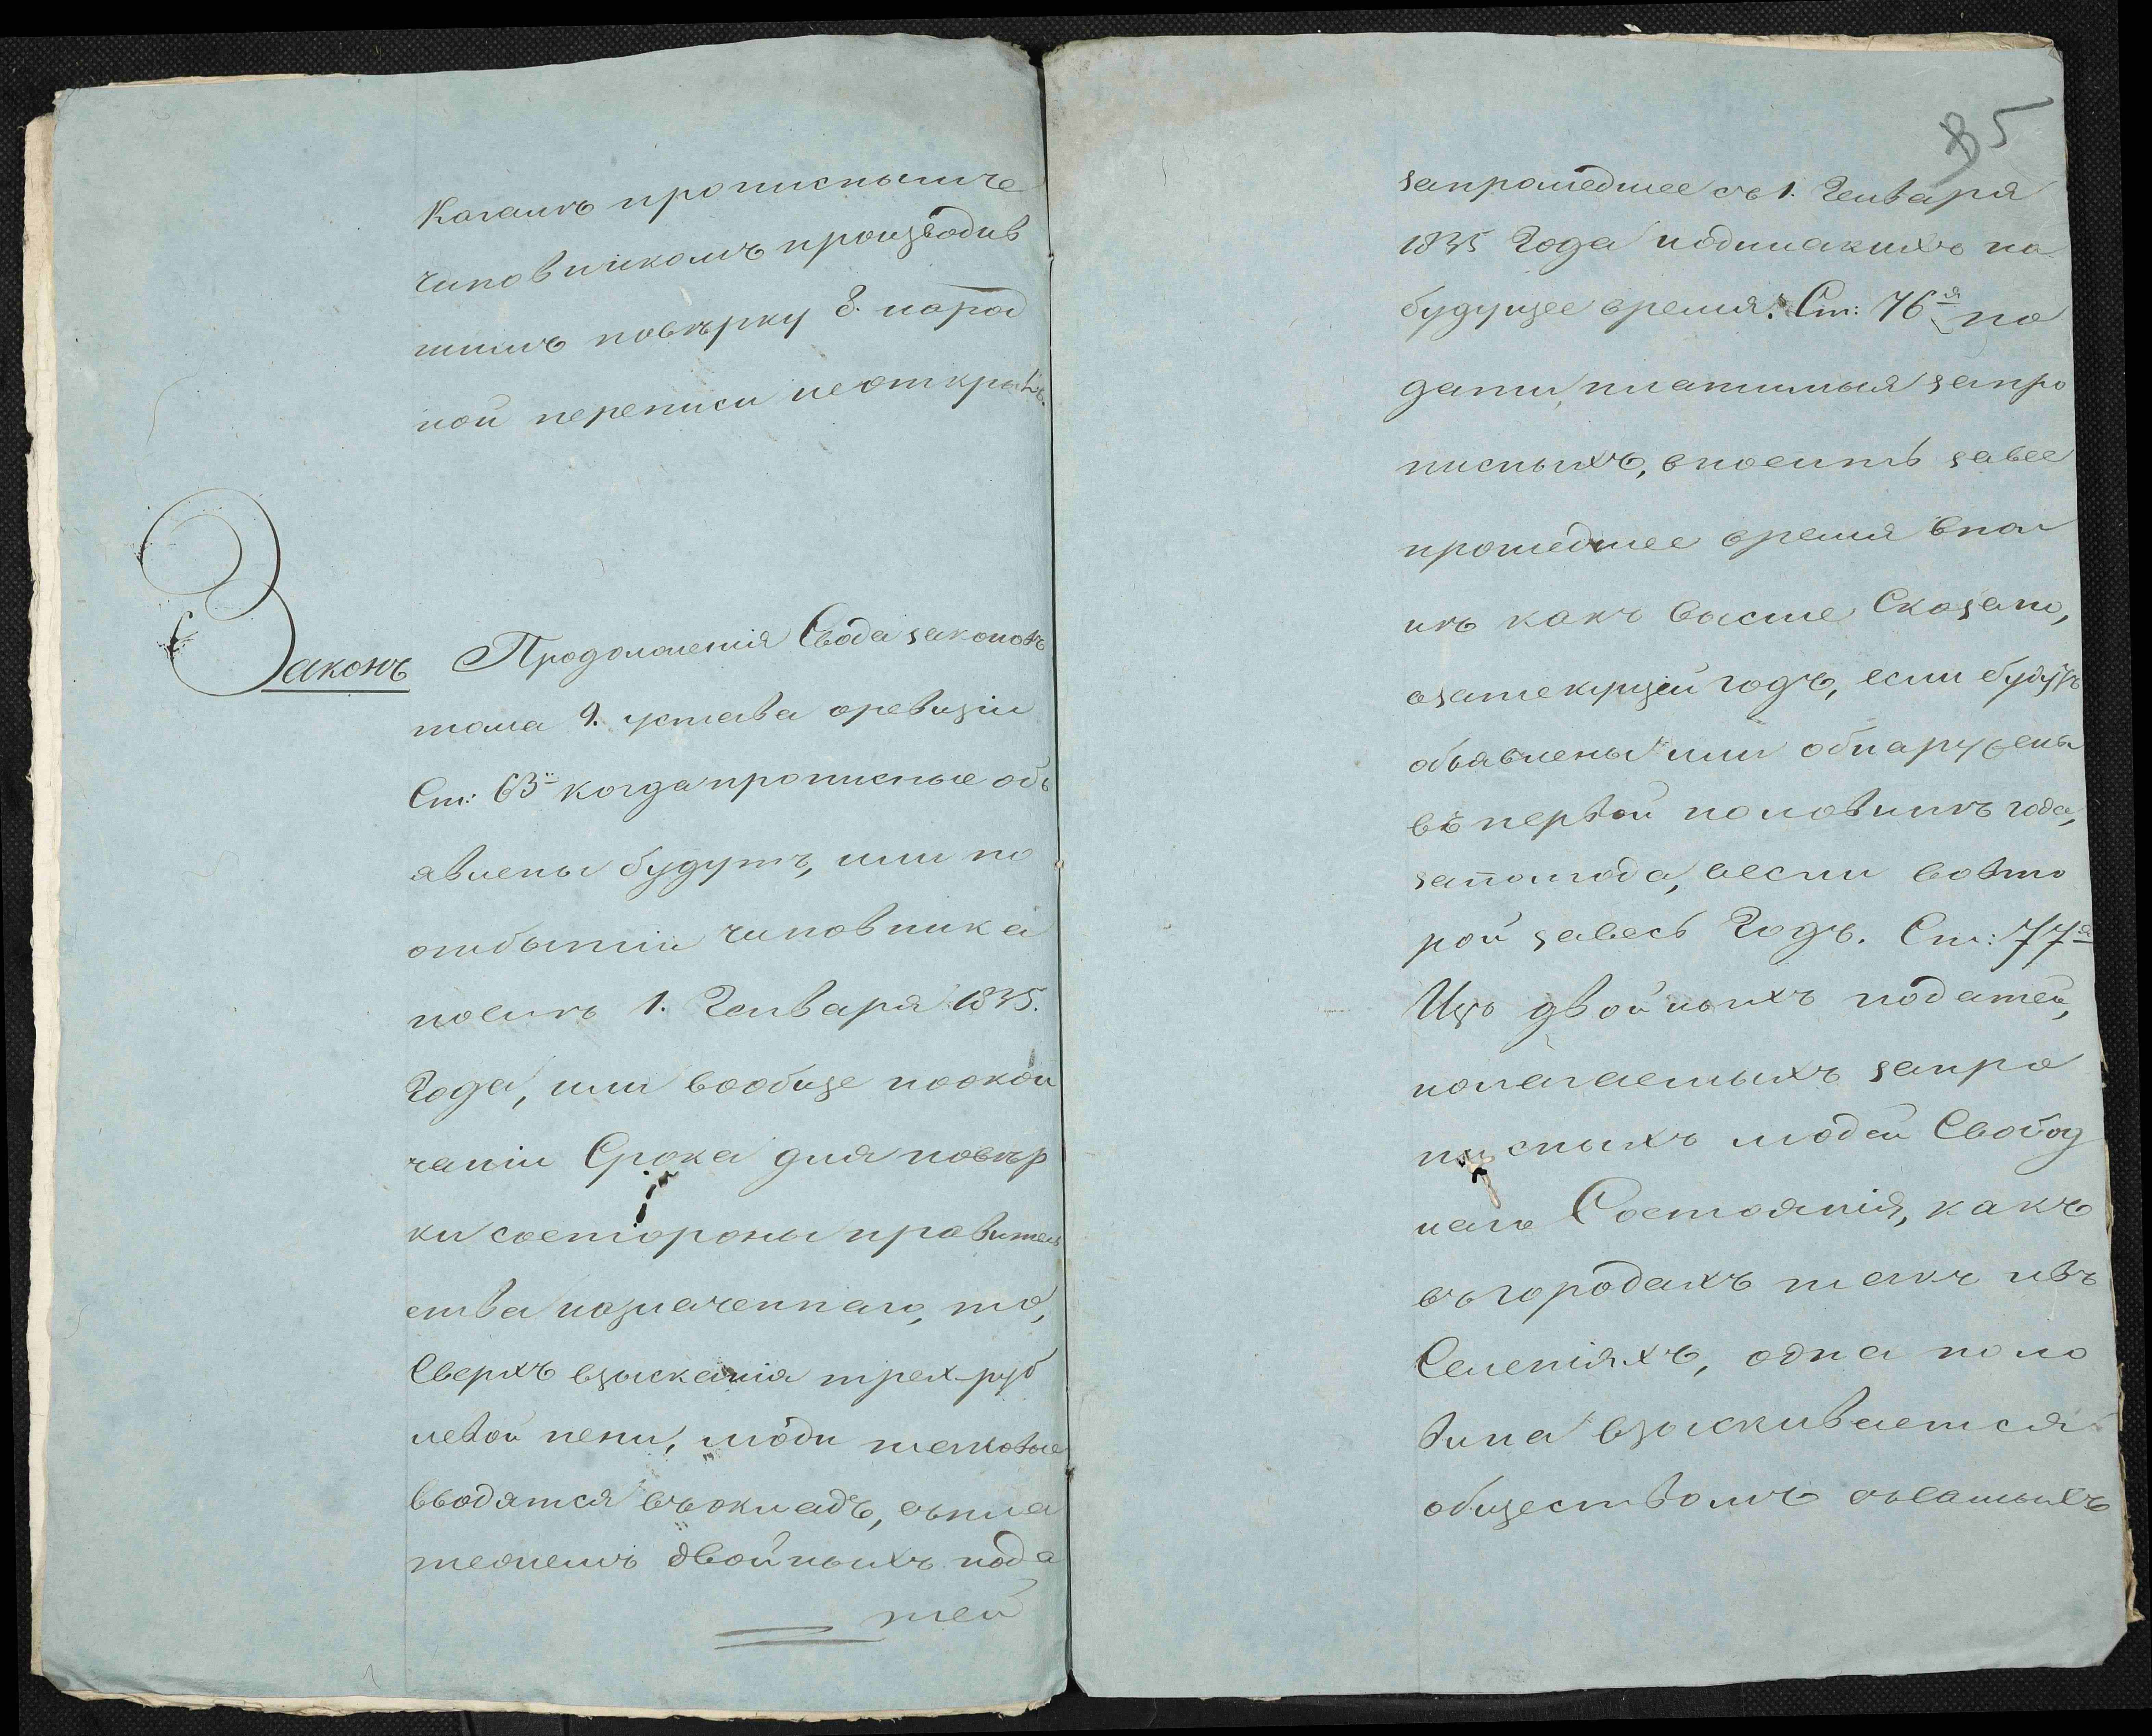 Кагаломъ прописныхъ не
чиновникомъ производив
шимъ повѣрку 8. народ
ной переписи не открытъ.
Законъ Продолженія Свода законовъ
тома 9. устава о ревизіи
Ст: 63й когда прописные объ
явлены будутъ, или по
отбытіи чиновника
послѣ 1. Генваря 1835.
Года, или вообще по окон
чаніи Срока для повѣр
ки со стороны правитель
ства назначеннаго, то,
Сверхъ взысканія трех-руб
левой пени, люди таковые
вводятся въ окладъ, съ пла
тежемъ двойныхъ пода
тей
35
запрошедшее съ 1. Генваря
1835 Года и одинакихъ на
будущее время. Ст: 76я по
дати, платимыя за про
писныхъ, вносить за все
прошедшее время впол
нѣ какъ высше Сказано,
а за текущей годъ, если будутъ
объявлены или обнаружены
въ первой половинѣ года,
за полгода, а если во вто
рой за весь Годъ. Ст: 77я
Изъ двойныхъ податей,
полагаемыхъ за про
писныхъ людей Свобод
наго Состоянія, какъ
въ городахъ такъ и въ
Селеніяхъ, одна поло
вина взыскивается
обществомъ съ самыхъ